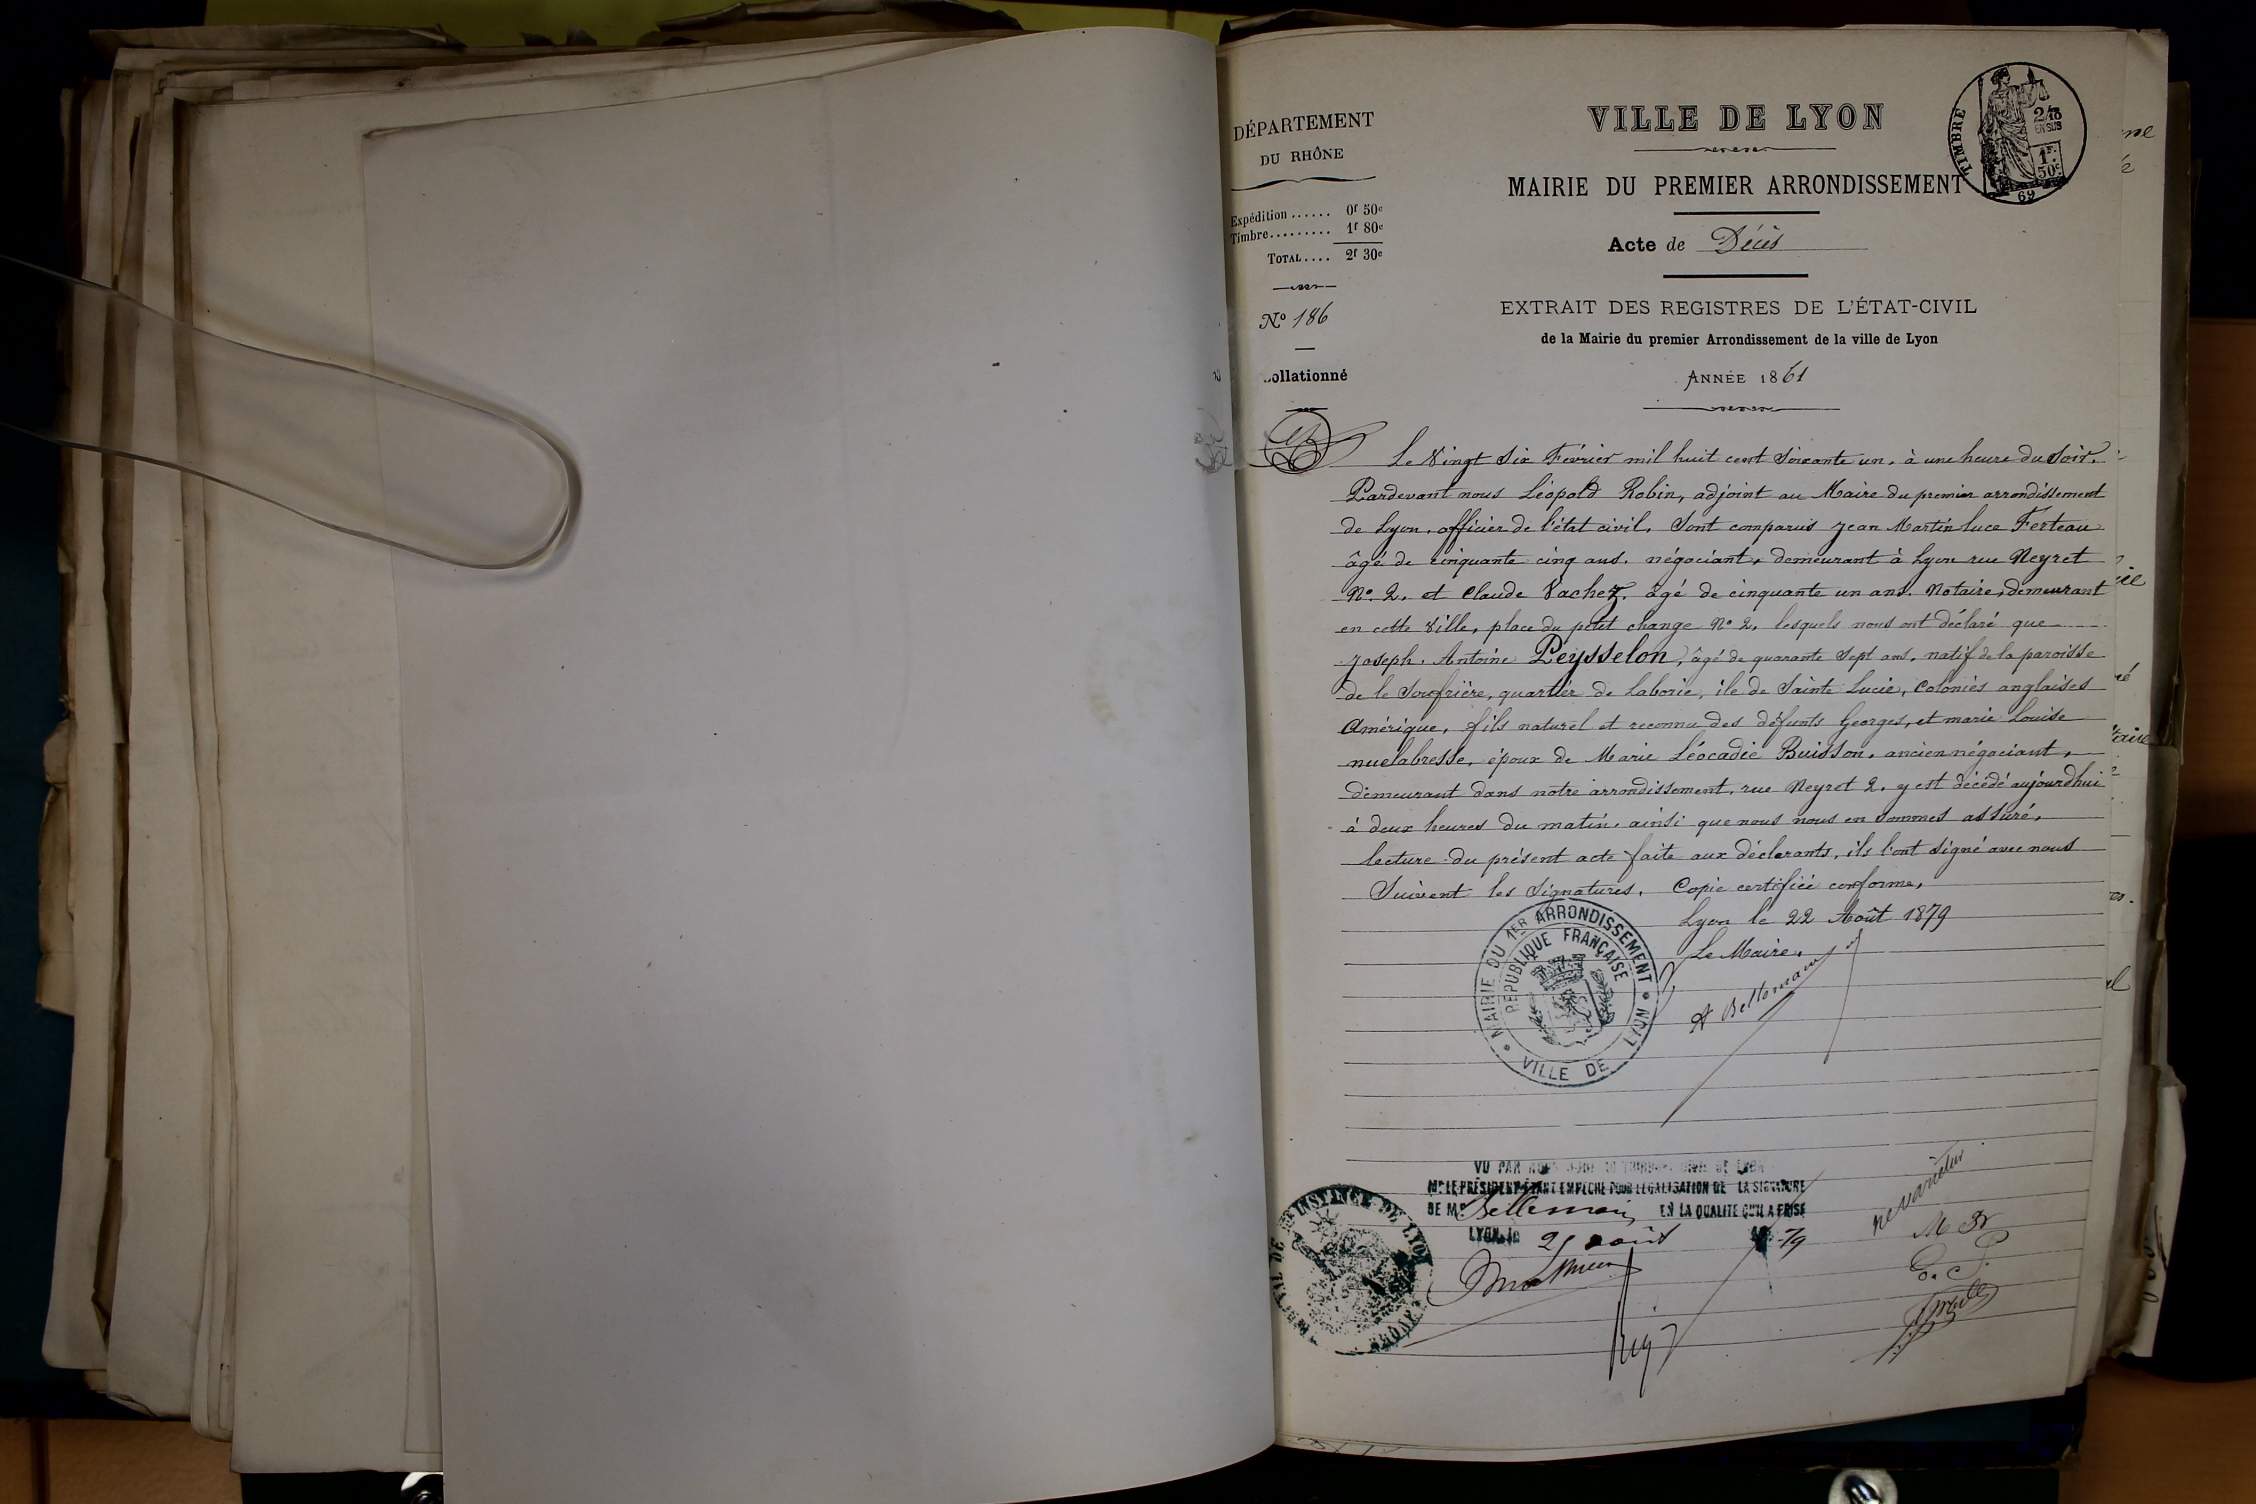 DÉPARTEMENT
DU RHÔNE
Expédition ...... 0f 50c
Timbre......... 1f 80c
TOTAL.... 2f 30c
No 186
ollationné
VILLE DE LYON
MAIRIE DU PREMIER ARRONDISSEMENT
TIMBRE
2/10
EN SUS
1F.
50c
69
Acte de Décès
EXTRAIT DES REGISTRES DE L'ÉTAT-CIVIL
de la Mairie du premier Arrondissement de la ville de Lyon
ANNÉE 1861
Le Vingt Six Février mil huit cent Soixante un, à une heure du Soir,
Pardevant nous Léopold Robin, adjoint au Maire du premier arrondissement
de Lyon, officier de l'état civil, Sont comparus Jean Martin Luce Ferteau
âgé de cinquante cinq ans, négociant, demeurant à Lyon rue Neyret
No. 2. et Claude Vachez, âgé de cinquante un ans, Notaire, demeurant
en cette Ville, place du petit change No 2, lesquels nous ont déclaré que
Joseph, Antoine Peysselon, âgé de quarante Sept ans, natif de la paroisse
de le Soufrière, quartier de Laborie, île de Sainte Lucie, Colonies anglaises
Amérique, fils naturel et reconnu des défunts Georges, et marie Louise
nuelabresse, époux de Marie Léocadie Buisson, ancien négociant,
demeurant dans notre arrondissement, rue Neyret 2. y est décédé aujourdhui
à deux heures du matin, ainsi que nous nous en sommes assuré,
lecture du présent acte faite aux déclarants, ils l'ont signé avec nous
Suivent les Signatures. Copie certifiée conforme,
Lyon le 22 Août 1879
Le Maire,
A Bellemain
MAIRIE DU 1ER ARRONDISSEMENT
RÉPUBLIQUE FRANÇAISE
VILLE DE LYON
VU PAR
MR LE PRÉSIDENT ÉTANT EMPÊCHÉ POUR LÉGALISATION DE LA SIGNATURE
DE MR Bellemain EN LA QUALITÉ QU'IL A PRISE
LYON, le août 79
INSTANCE DE LYON
ne varietur